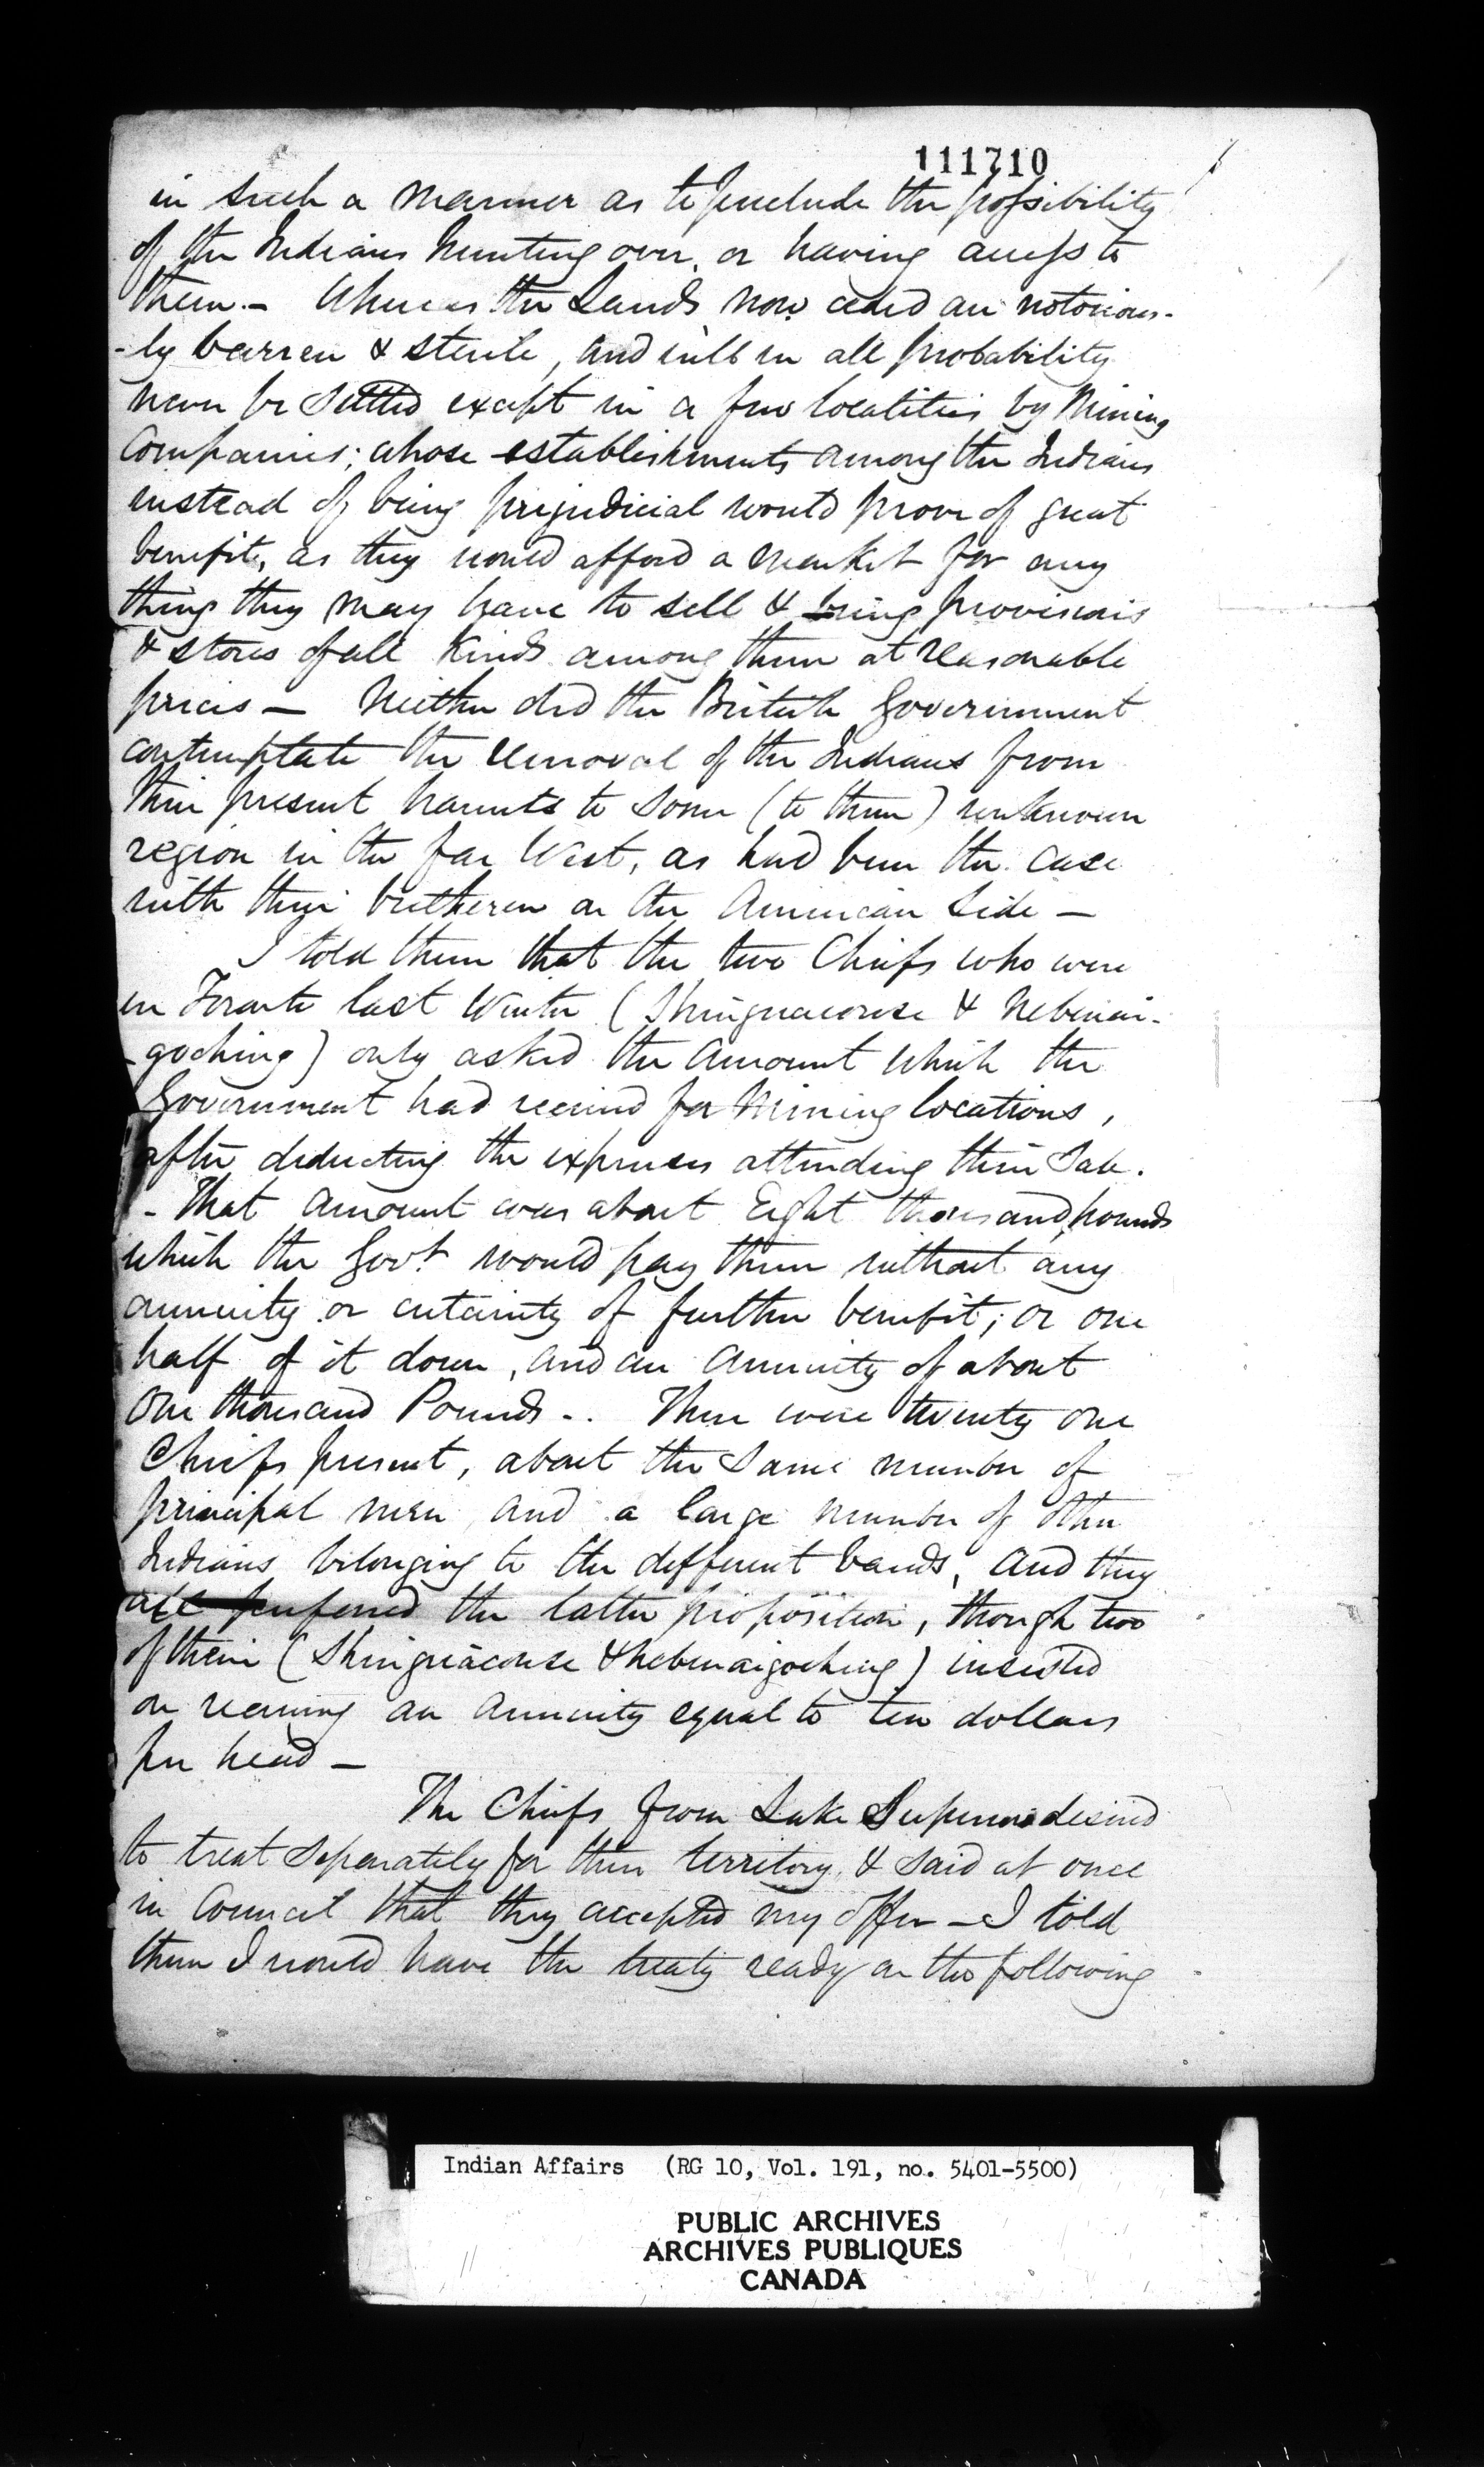 111710
in such a manner as to preclude the possibility
of the Indians hunting over, or having access to
them - Whereas the Lands now ceded are notorious-
-ly barren & sterile, and will in all probability
never be settled except in a few localities by Mining
Companies; whose establishments among the Indians
instead of being prejudicial would prove of great
benefit, as they would afford a market for any
things they may have to sell & bring provisions
& stores of all kinds among them at reasonable
prices — Neither did the British Government
contemplate the removal of the Indians from
their present haunts to some (to them) unknown
region in the far West, as had been the case
with their bretheren on the American side —
I told them that the two Chiefs who were
in Toronto last Winter (Shinguacouse & Nebenai-
-goching) only asked the amount which the
Government had received for Mining locations,
after deducting the expenses attending their sale.
- That amount was about Eight thousand pounds
which the Govt. would pay them without any
annuity or certainty of further benefit; or one
half of it down, and an annuity of about
One thousand Pounds -. There were twenty one
Chiefs present, about the same number of
principal men and a large number of other
Indians belonging to the different bands, and they
all preferred the latter proposition, though two
of them (Shinguacouse & Nebenaigoching) insisted
on receiving an annuity equal to ten dollars
per head —
The Chiefs from Lake Superior desired
to treat separately for their territory, & said at once
in Council that they accepted my offer — I told
them I would have the treaty ready on the following
Indian Affairs (RG 10, Vol. 191, no. 5401-5500)
PUBLIC ARCHIVES
ARCHIVES PUBLIQUES
CANADA